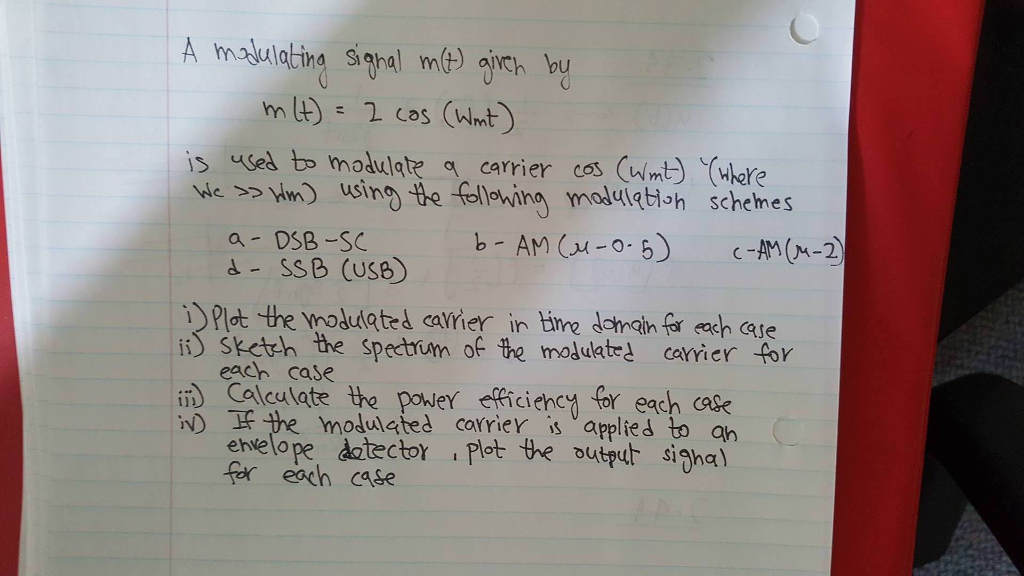 A modulating signal m(t) given by
m(t) = 2 cos (Wmt)
is used to modulate a carrier cos (Wmt) (where
Wc >> Wm) using the following modulation schemes
a - DSB - SC b - AM (μ - 0.5) c - AM (μ - 2)
d - SSB (USB)
i) Plot the modulated carrier in time domain for each case
ii) Sketch the spectrum of the modulated carrier for
each case
iii) Calculate the power efficiency for each case
iv) If the modulated carrier is applied to an
envelope detector, plot the output signal
for each case